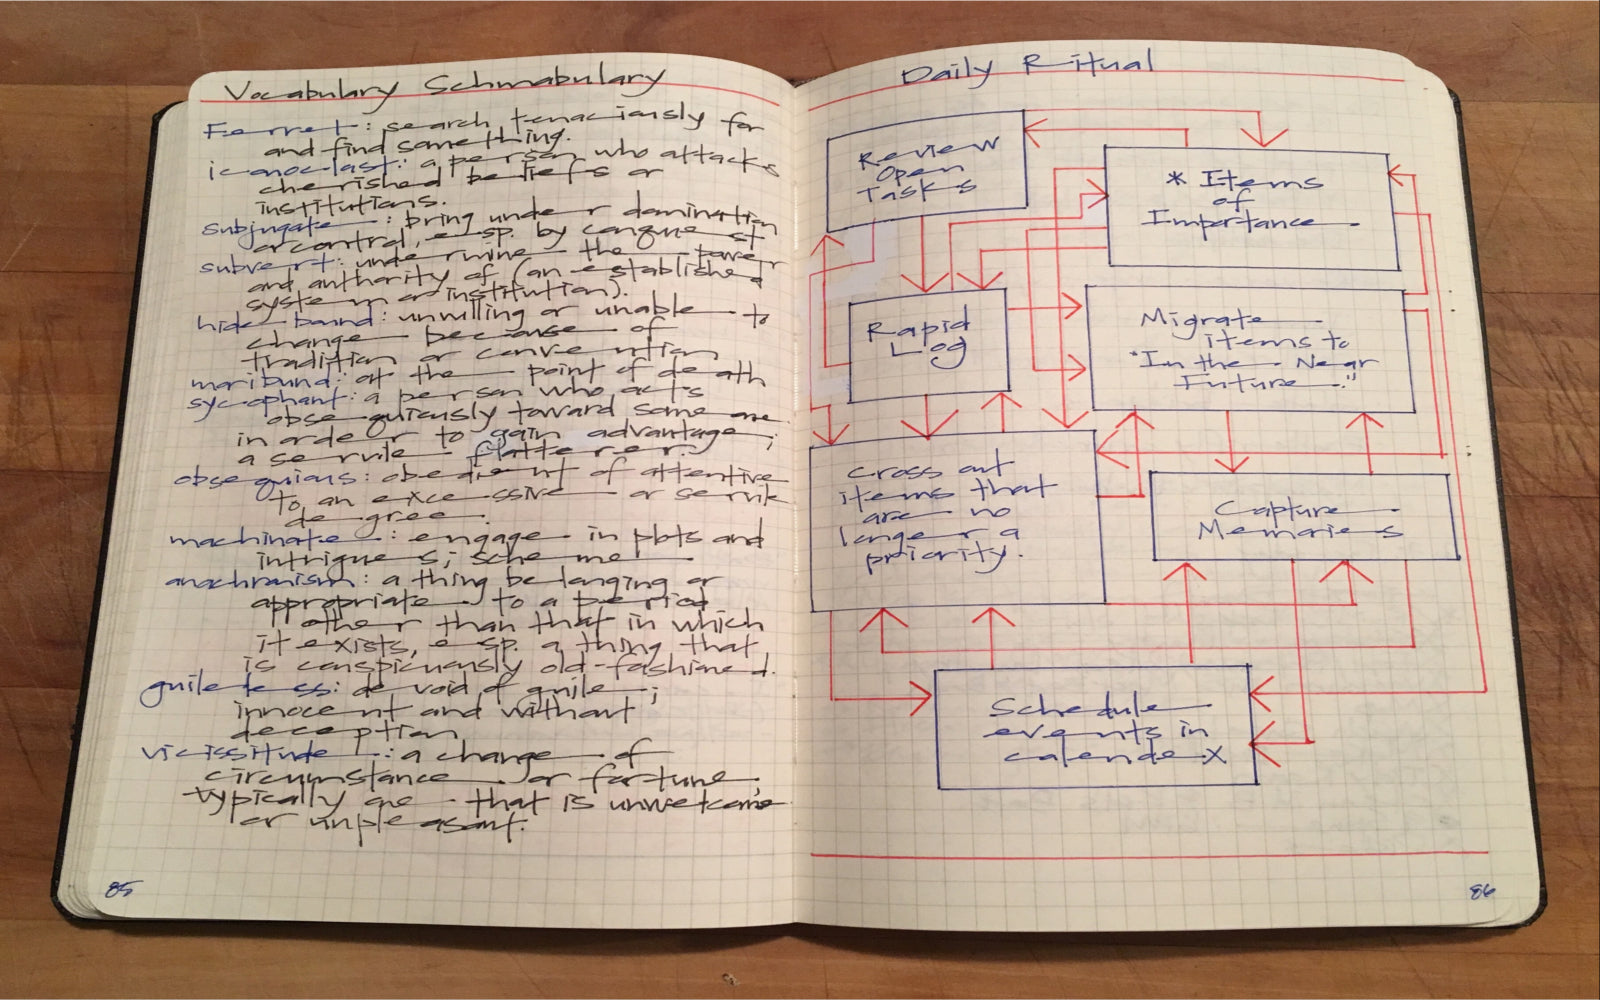 Vocabulary Schmabulary
Ferret: search tenaciously for
and find something.
iconoclast: a person who attacks
cherished beliefs or
institutions.
subjugate: bring under domination
or control, esp. by conquest
subvert: undermine the power
and authority of (an established
system or institution).
hidebound: unwilling or unable to
change because of
tradition or convention
moribund: at the point of death
sycophant: a person who acts
obsequiously toward someone
in order to gain advantage;
a servile flatterer.
obsequious: obedient of attentive
to an excessive or servile
degree.
machinate: engage in plots and
intrigues; scheme
anachronism: a thing belonging or
appropriate to a period
other than that in which
it exists, esp. a thing that
is conspicuously old-fashioned.
guileless: devoid of guile;
innocent and without
deception
vicissitude: a change of
circumstance or fortune,
typically one that is unwelcome
or unpleasant.
85
Daily Ritual
Review
Open
Tasks
* Items
of
Importance
Rapid
Log
Migrate
items to
"In the Near
Future."
Cross out
items that
are no
longer a
priority.
Capture
Memories
Schedule
events in
calendex
86